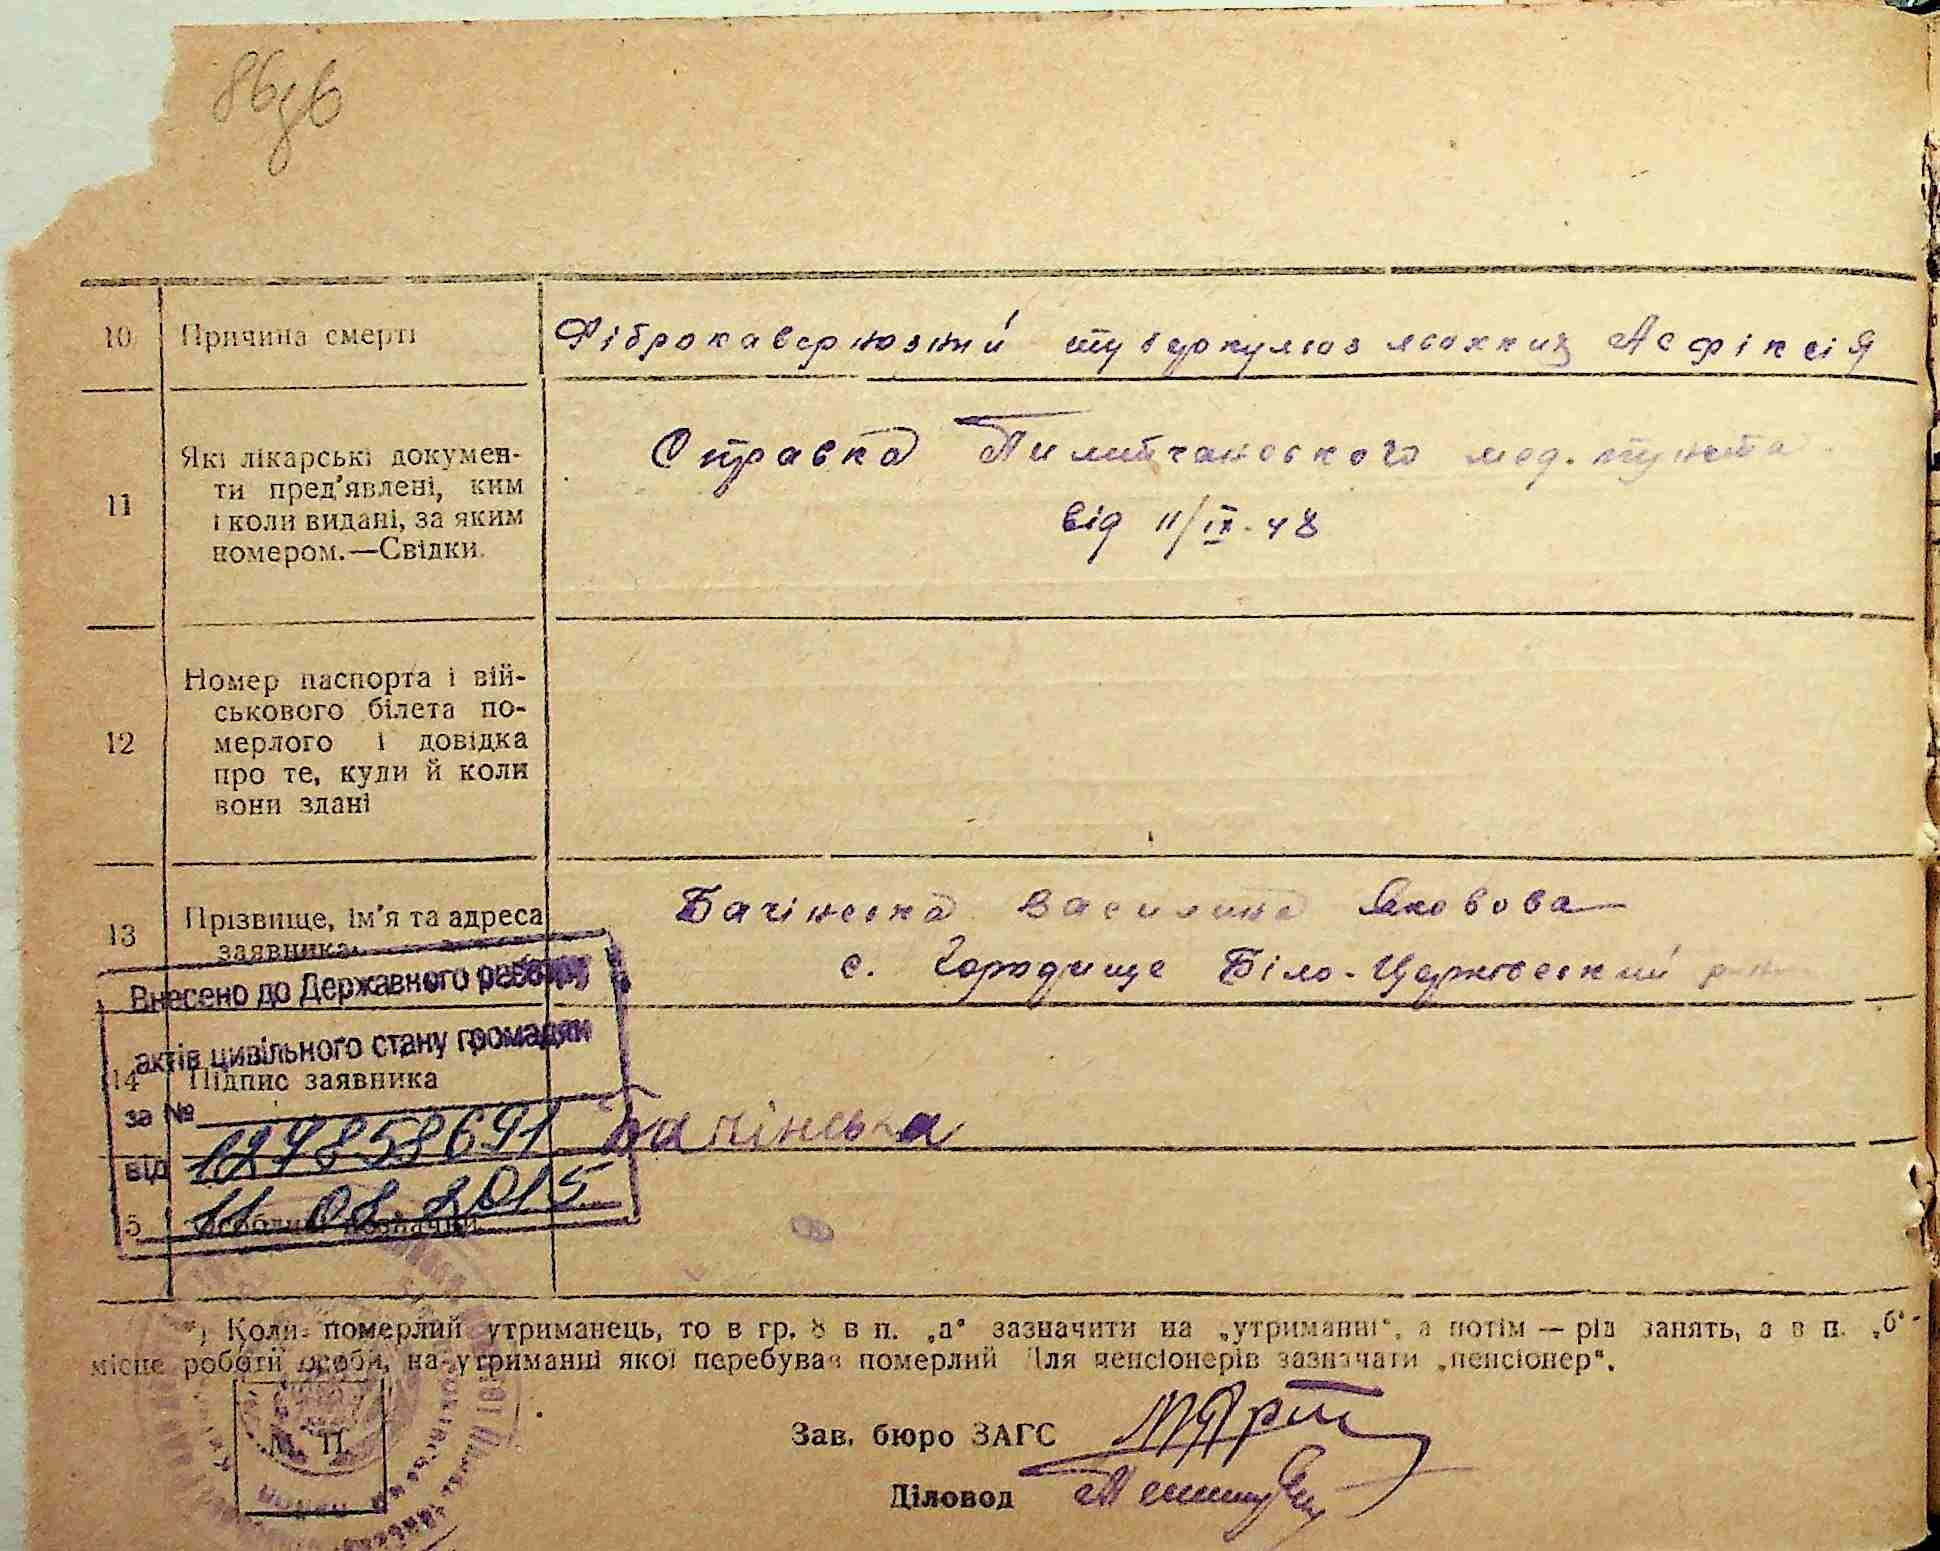 86зв
10 Причина смерті Фіброкавернозний туберкульоз легких Асфіксія
11 Які лікарські докумен-
ти пред'явлені, ким
і коли видані, за яким
номером.—Свідки.
Справка Пилипчанського мед. пункта
від 11/IX-48
12 Номер паспорта і вій-
ськового білета по-
мерлого і довідка
про те, куди й коли
вони здані
13 Прізвище, ім'я та адреса
заявника
Бачінська Василина Яковова
с. Городище Біло-Церковський р-н
Внесено до Державного реєстру
актів цивільного стану громадян
14 Підпис заявника
Бачінська
за № 127858691
від 11.08.2015
15 Особливі позначки
*) Коли померлий утриманець, то в гр. 8 в п. „а" зазначити на „утриманні", а потім — рід занять, а в п. „б"-
місце роботи особи, на утриманні якої перебував померлий Для пенсіонерів зазначати „пенсіонер".
М. П.
Зав. бюро ЗАГС
Діловод